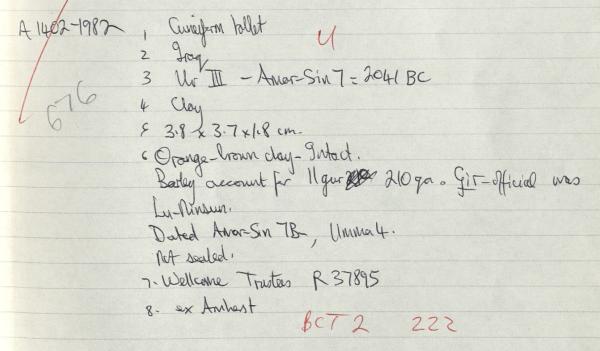 A 1402-1982 1, Cuneiform tablet
U
2 Iraq
3 Ur III - Amar-Sin 7 = 2041 BC
676
4 Clay
5 3.8 x 3.7 x 1.8 cm.
6 Orange-brown clay - Intact.
Barley account for 11 gur 210 qa. Gir-official was
Lu-Ninsun.
Dated Amar-Sin 7B, Umma 4.
Not sealed.
7. Wellcome Trustees R 37895
8. ex Amherst
BCT 2 222